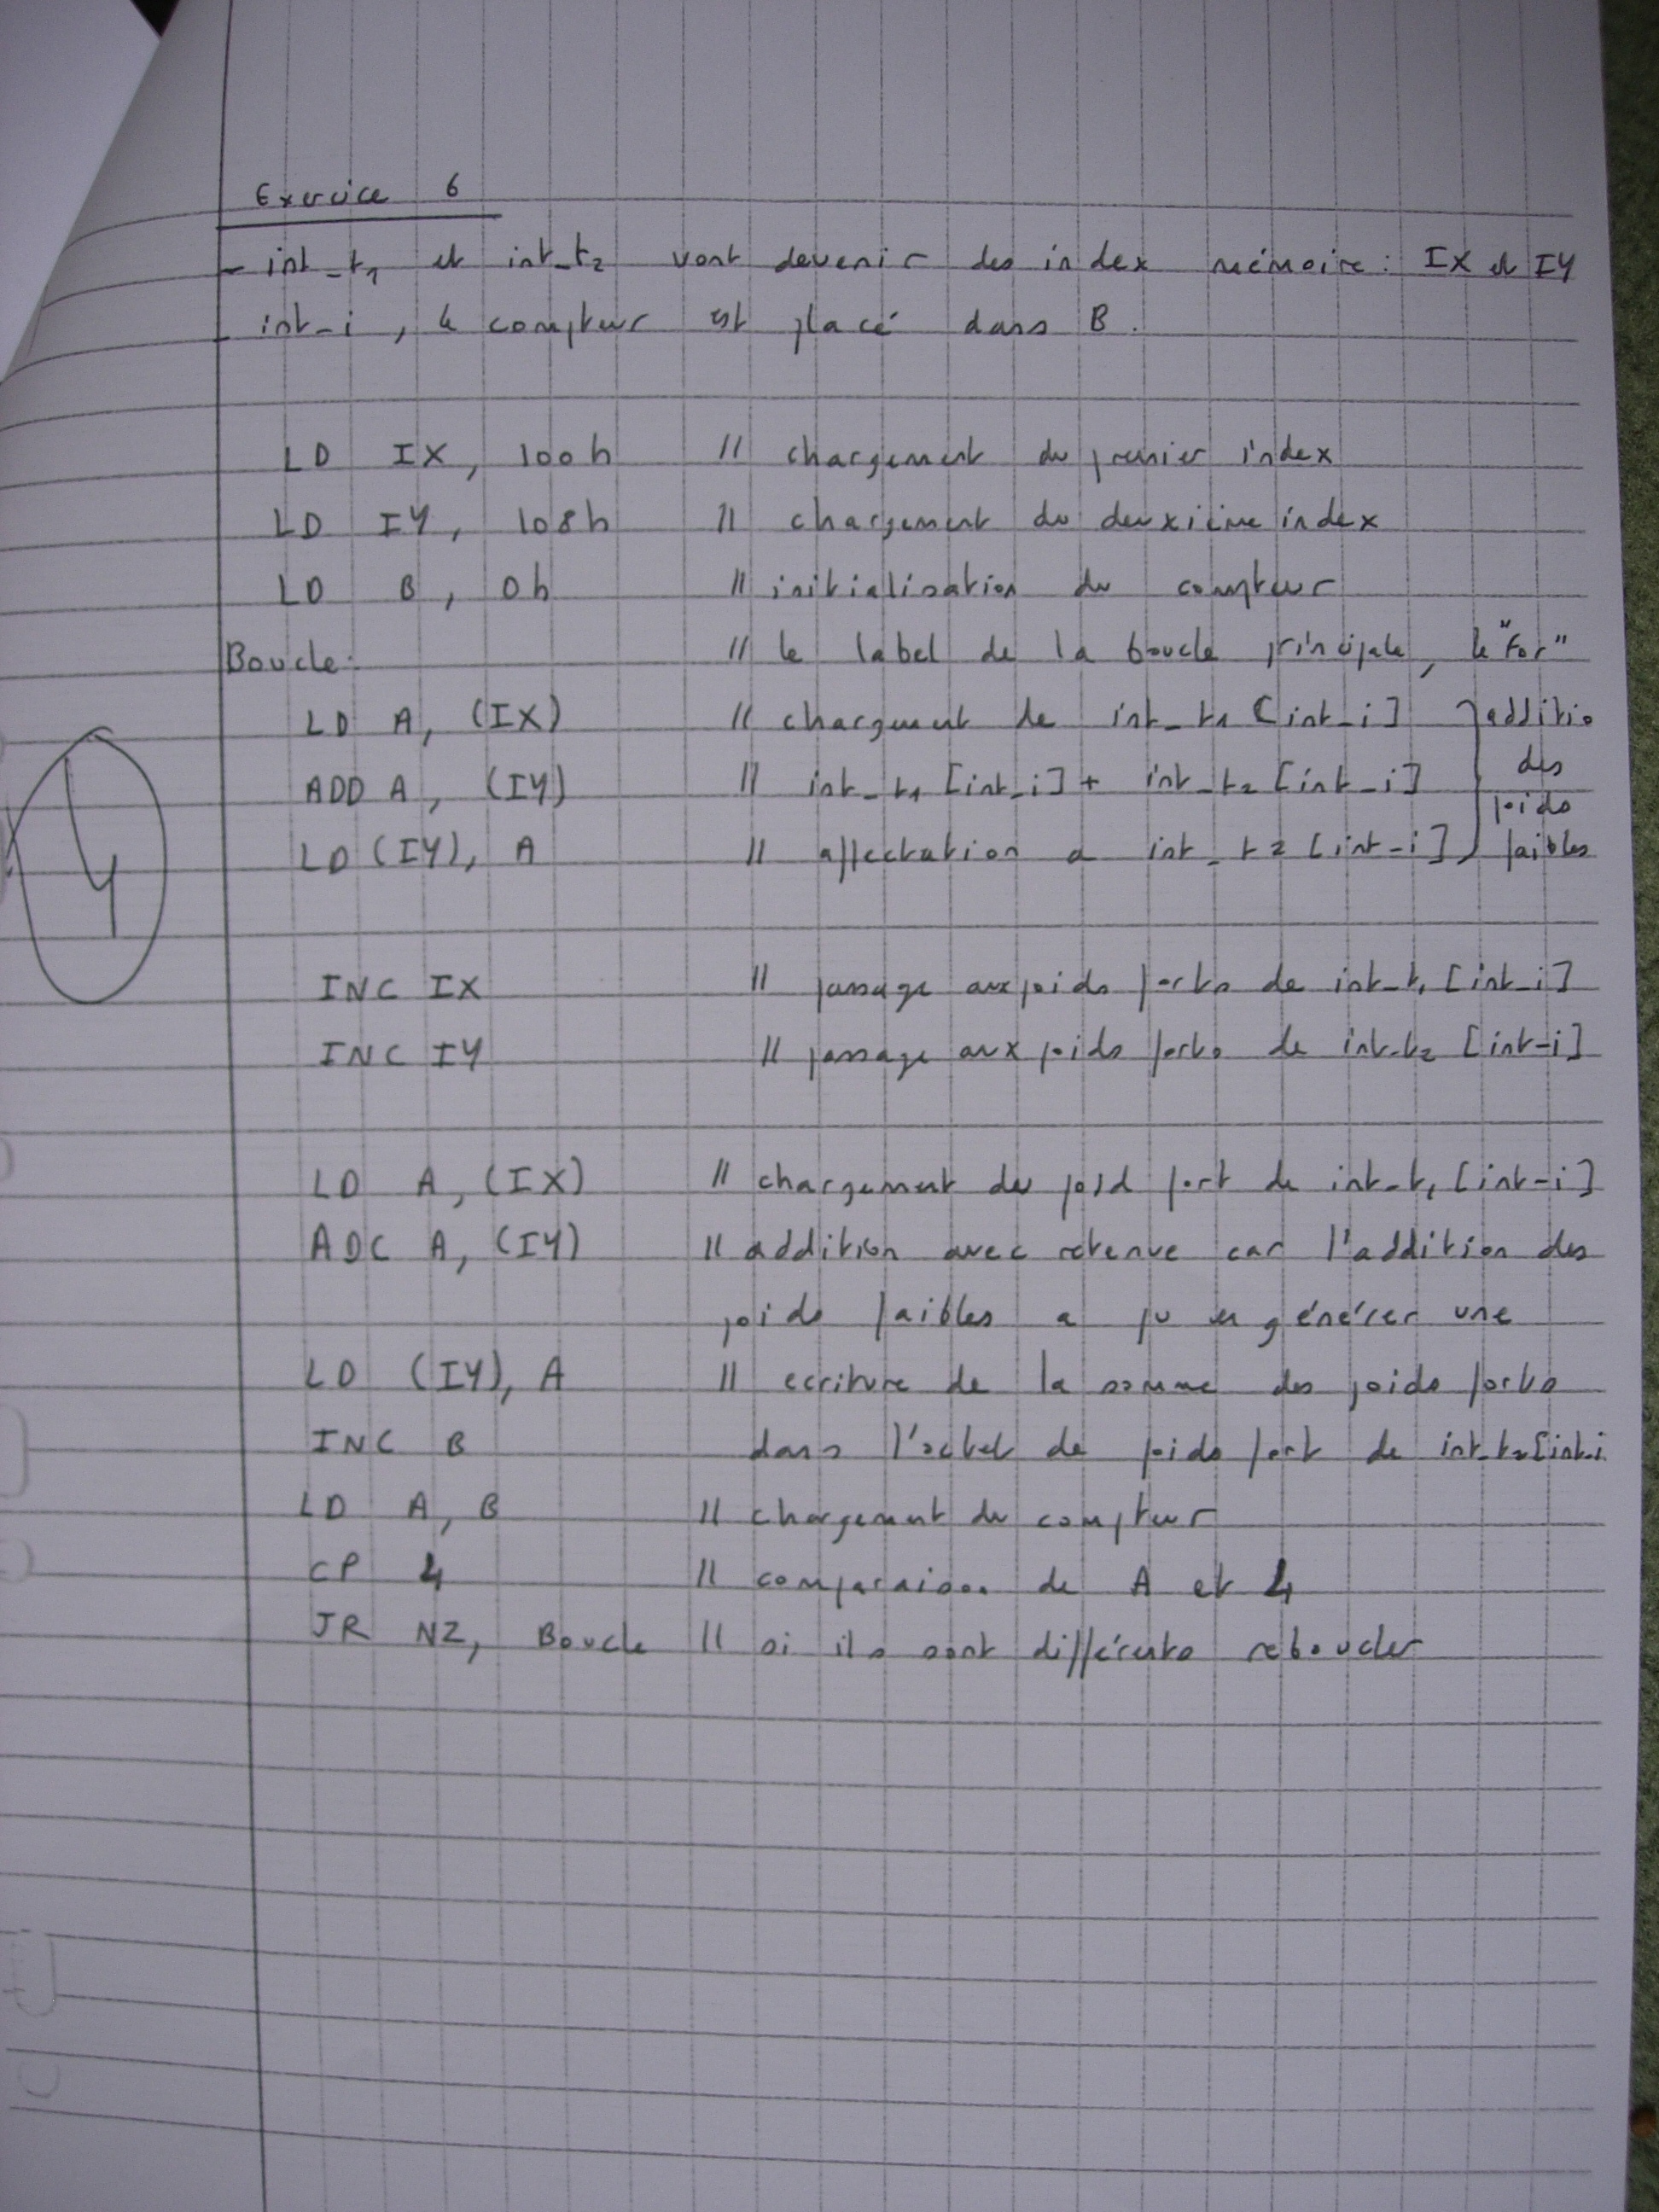 Exercice 6
- int_t1 et int_t2 vont devenir des index mémoire : IX et IY
- int_i, le compteur est placé dans B.
LD IX, 100h // chargement du premier index
LD IY, 108h // chargement du deuxième index
LD B, 0h // initialisation du compteur
Boucle: // le label de la boucle principale, le "For"
LD A, (IX) // chargement de int_t1 [int_i] } additio
ADD A, (IY) // int_t1 [int_i] + int_t2 [int_i] des
poids
LD (IY), A // affectation a int_t2 [int_i] faibles
4
INC IX // passage aux poids forts de int_t1 [int_i]
INC IY // passage aux poids forts de int_t2 [int_i]
LD A, (IX) // chargement du poid fort de int_t1 [int_i]
ADC A, (IY) // addition avec retenue car l'addition des
poids faibles a pu en générer une
LD (IY), A // ecriture de la somme des poids forts
INC B dans l'octet de poids fort de int_t2 [int_i
LD A, B // chargement du compteur
CP 4 // comparaison de A et 4
JR NZ, Boucle // si ils sont différents reboucler